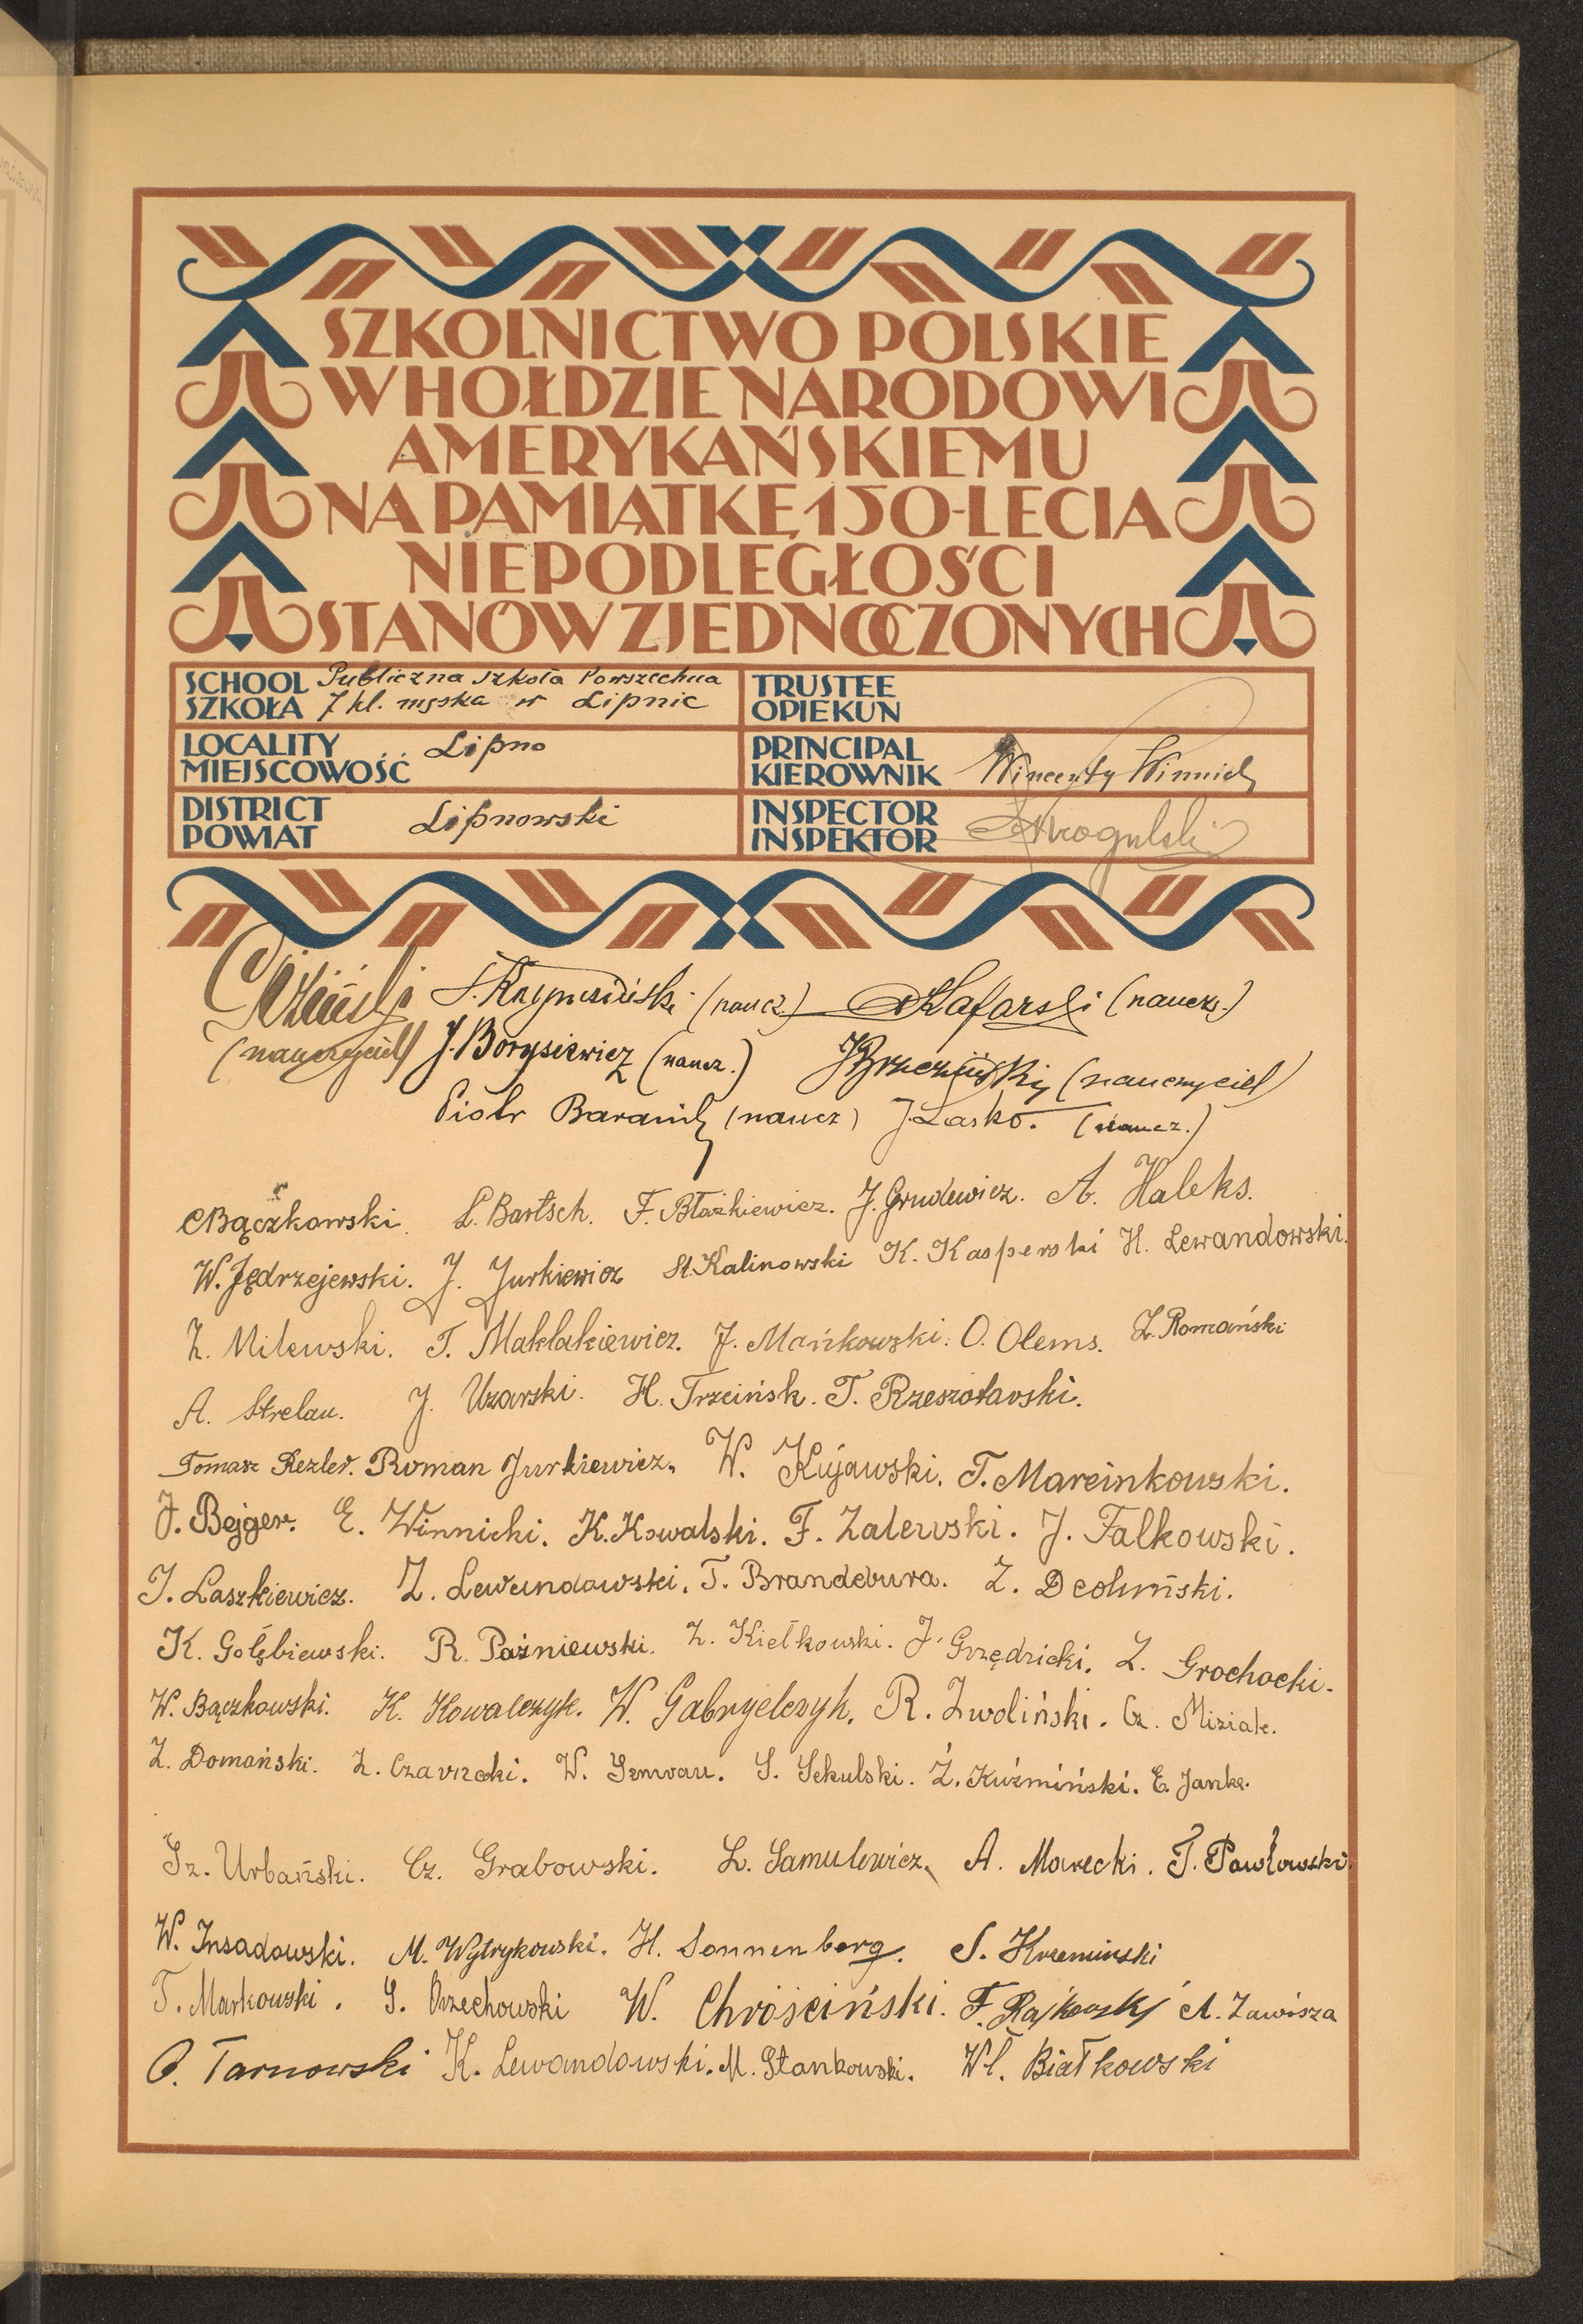 SZKOLNICTWO POLSKIE
W HOŁDZIE NARODOWI
AMERYKAŃSKIEMU
NA PAMIĄTKĘ 150-LECIA
NIEPODLEGŁOŚCI
STANÓW ZJEDNOCZONYCH
SCHOOL SZKOŁA Publiczna szkoła Powszechna 7 kl. męska w Lipnie
TRUSTEE OPIEKUN
LOCALITY MIEJSCOWOŚĆ Lipno
PRINCIPAL KIEROWNIK Wincenty
DISTRICT POWIAT Lipnowski
INSPECTOR INSPEKTOR
(naucz.) (naucz.)
(nauczyciel) J. Borysiewicz (naucz.) J Brzeziński (nauczyciel)
Piotr (naucz) J. Lasko. (naucz.)
Bączkowski L. Bartsch. F. Błażkiewicz. J. Grudewicz. A. Haleks.
W. Jędrzejewski. J. Jurkiewicz St. Kalinowski K. Kasperski H. Lewandowski.
Z. Milewski. T. Makłakiewicz. J. Mańkowski. O. Olems. Z. Romański
A. Strelau. J. Uzarski. H. Trzcińsk. T. Rzeszotarski.
Tomasz Rezler. Roman Jurkiewicz. W. Kujawski. T. Marcinkowski.
J. Bejger. E. Winnicki. K. Kowalski. F. Zalewski. J. Falkowski.
J. Laszkiewicz. Z. Lewandowski. T. Brandebura. Z.
K. Gołębiewski. R. Paźniewski. Z. Kiełkowski. J. Grzędzicki. Z. Grochocki.
W. Bączkowski. K. Kowalczyk. W. Gabryelczyk. R. Zwoliński. Cz. Miziak.
Z. Domański. Z. W. S. Sekulski. Z. Kuźmiński. E. Janke.
Sz. Urbański. Cz. Grabowski. L. Samulewicz. A. Marecki. T. Pawłowski.
W. Insadowski. M. Wytrykowski. H. Sonnenberg. S. Krzemiński
T. Markowski. S. Orzechowski W. Chróściński. F. Rajkowski A. Zawisza
O. Tarnowski K. Lewandowski. M. Stankowski. Wł. Białkowski